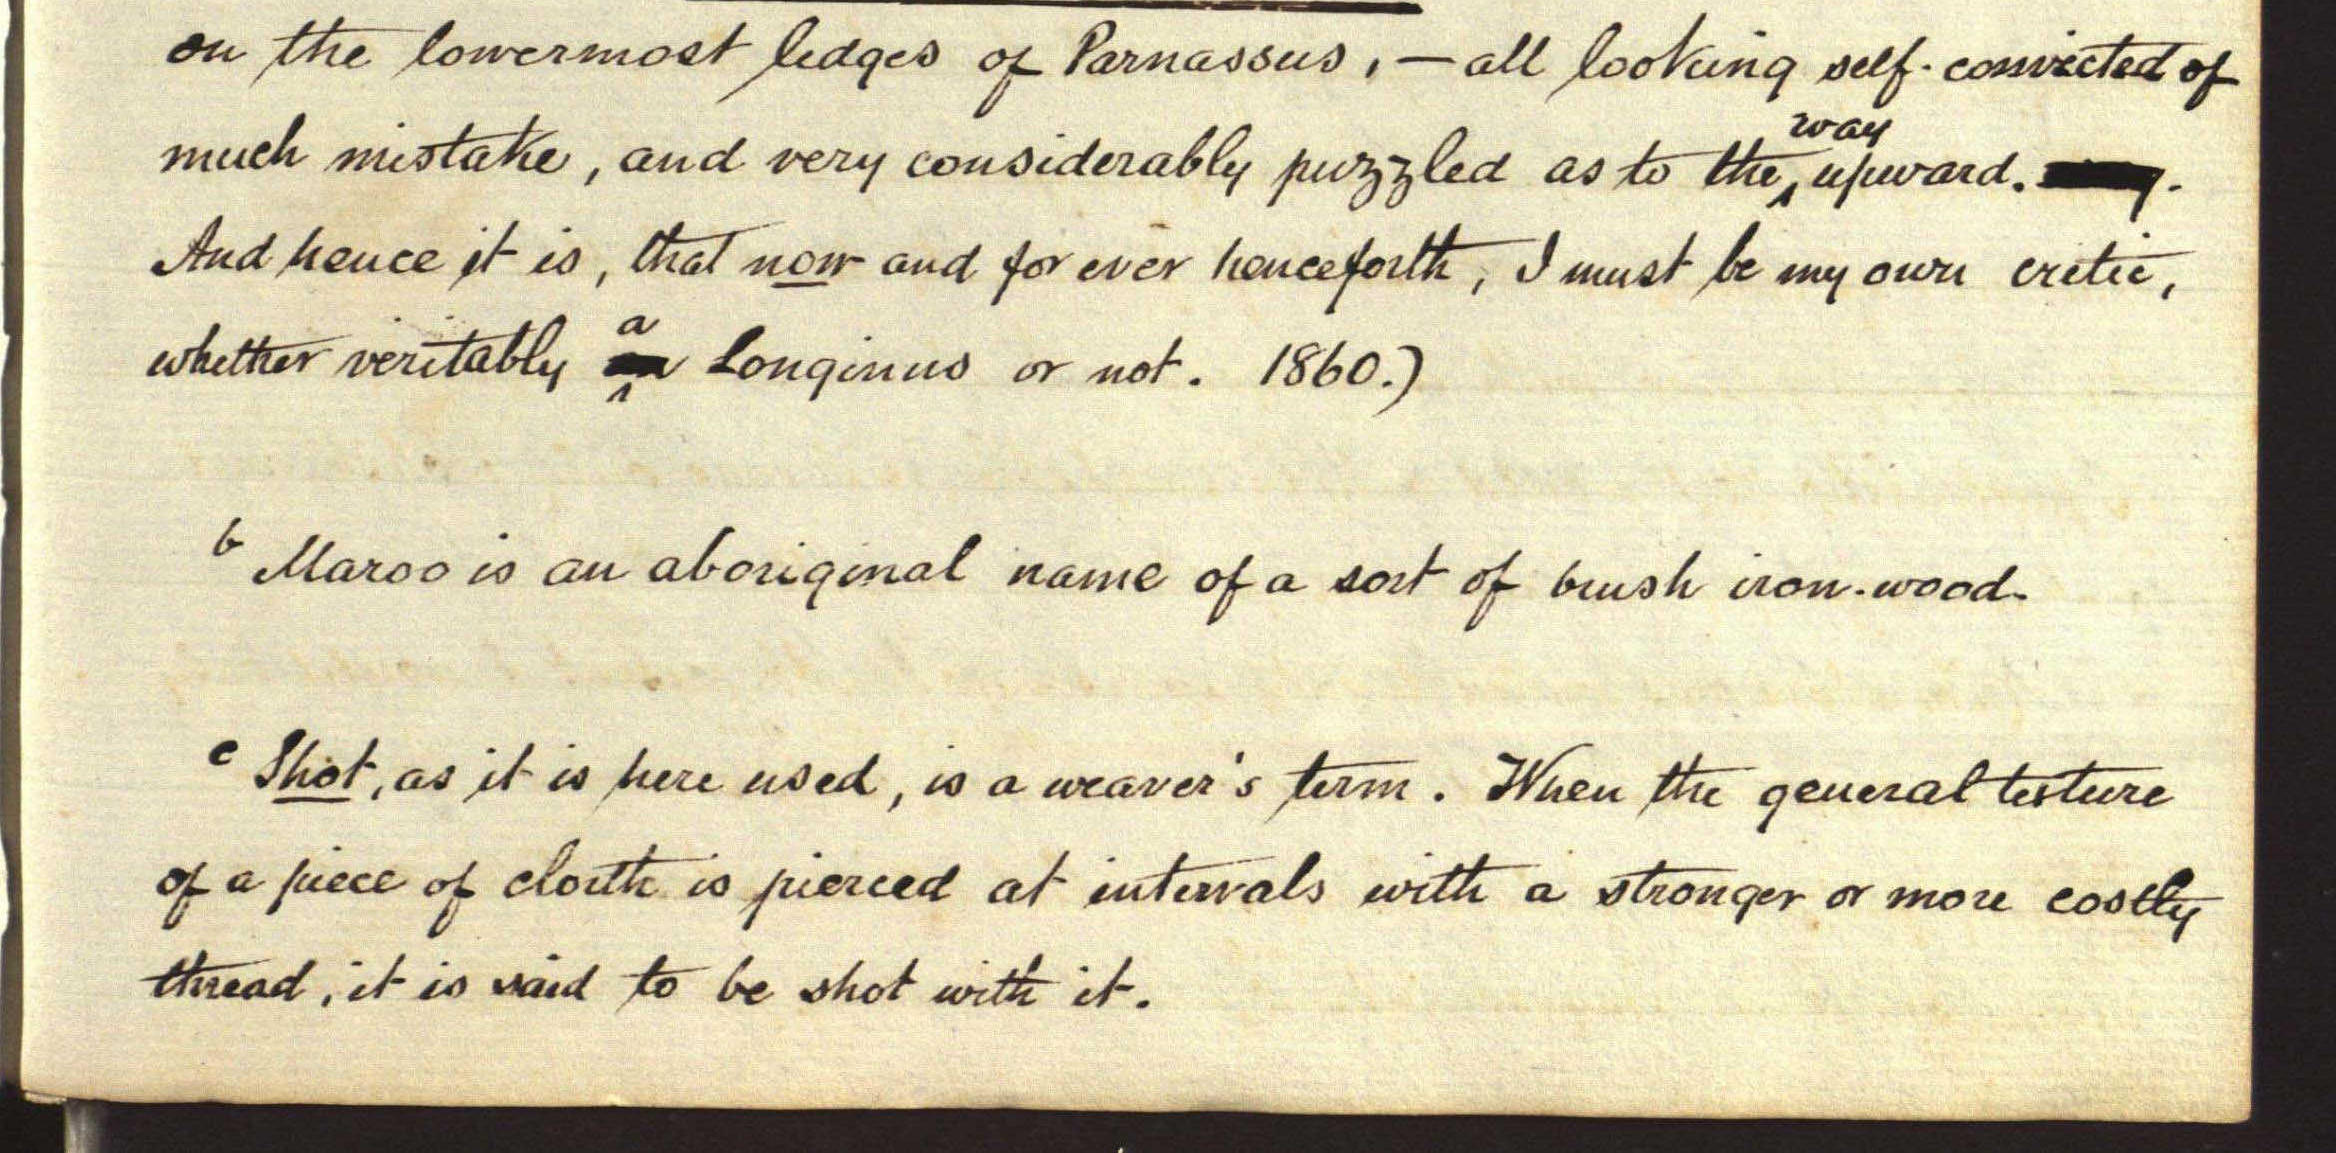 on the lowermost ledges of Parnassus, — all looking self-convicted of
much mistake, and very considerably puzzled as to the way upward.
And hence it is, that now and for ever henceforth, I must be my own critic,
whether veritably a Longinus or not. 1860.)
b Maroo is an aboriginal name of a sort of brush iron-wood.
c Shot, as it is here used, is a weaver's term. When the general texture
of a piece of cloth is pierced at intervals with a stronger or more costly
thread, it is said to be shot with it.